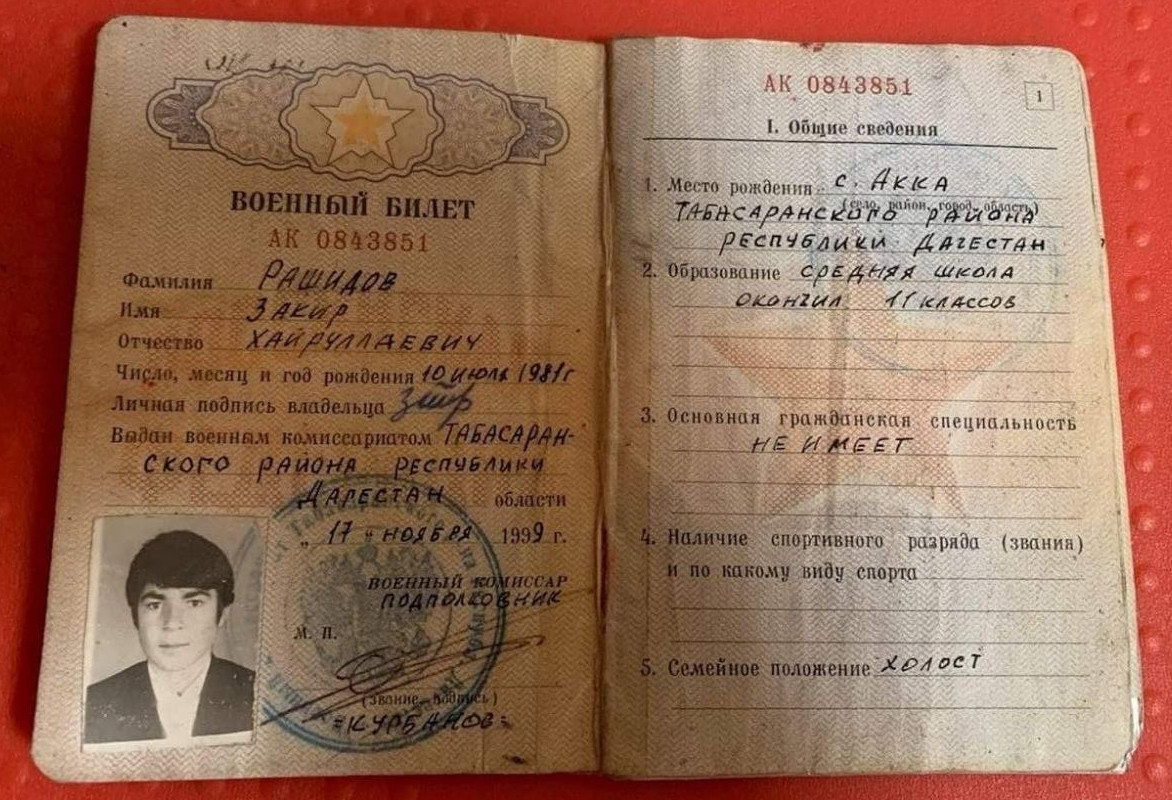 ВОЕННЫЙ БИЛЕТ
АК 0843851
Фамилия РАШИДОВ
Имя ЗАКИР
Отчество ХАЙРУЛЛАЕВИЧ
Число, месяц и год рождения 10 ИЮЛЯ 1981г
Личная подпись владельца
Выдан военным комиссариатом ТАБАСАРАН-
СКОГО РАЙОНА РЕСПУБЛИКИ
ДАГЕСТАН области
„ 17 " НОЯБРЯ 1999 г.
ВОЕННЫЙ КОМИССАР
ПОДПОЛКОВНИК
М. П.
(звание, подпись)
=КУРБАНОВ=
АК 0843851
1
I. Общие сведения
1. Место рождения с. АККА
(село, район, город, область)
ТАБАСАРАНСКОГО РАЙОНА
РЕСПУБЛИКИ ДАГЕСТАН
2. Образование СРЕДНЯЯ ШКОЛА
ОКОНЧИЛ 11 КЛАССОВ
3. Основная гражданская специальность
НЕ ИМЕЕТ
4. Наличие спортивного разряда (звания)
и по какому виду спорта
5. Семейное положение ХОЛОСТ